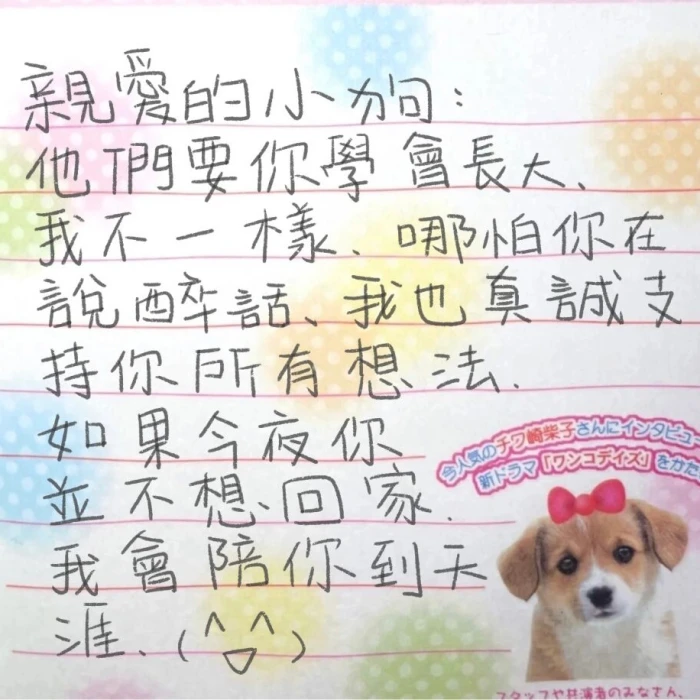 親愛的小狗：
他們要你學會長大、
我不一樣、哪怕你在
說醉話、我也真誠支
持你所有想法.
如果今夜你
並不想回家.
我會陪你到天
涯、(^▽^)
今人気のチワ崎柴子さんにインタビュー
新ドラマ「ワンコデイズ」をかた
スタッフや共演者のみなさん、